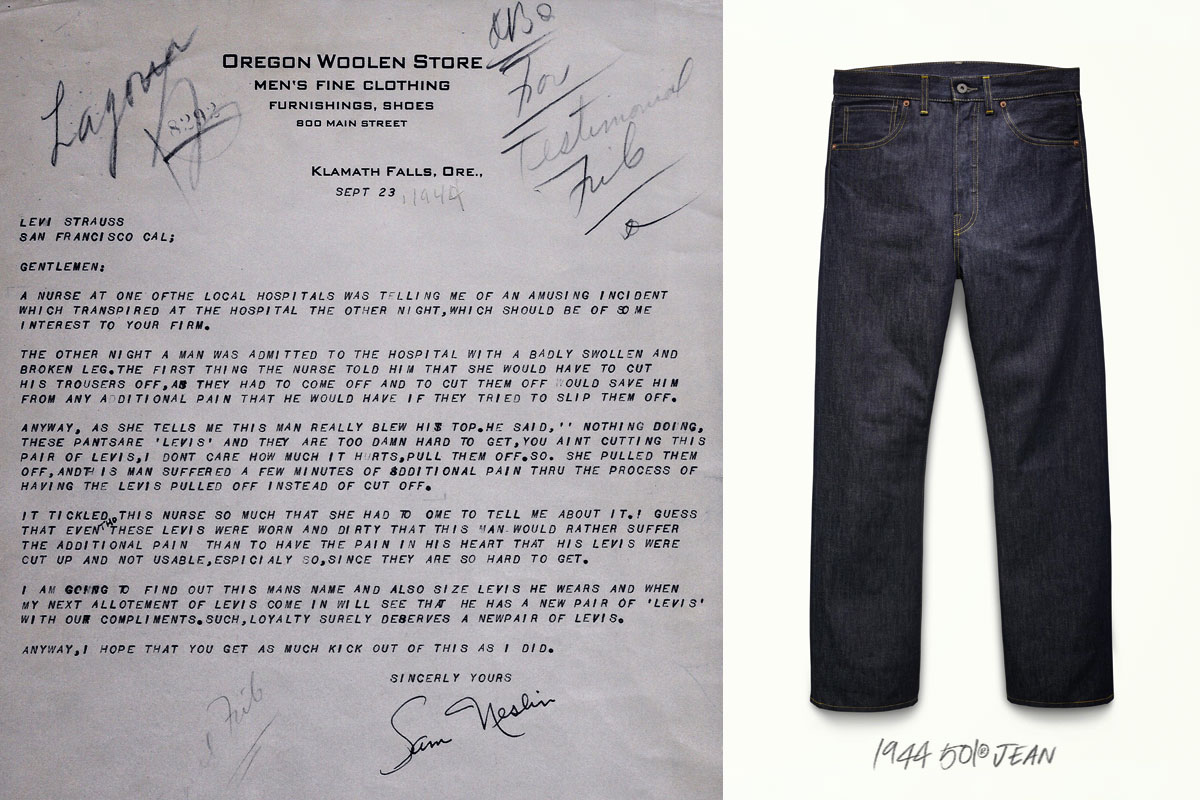 Lagomar
8292
OREGON WOOLEN STORE
MEN'S FINE CLOTHING
FURNISHINGS, SHOES
800 MAIN STREET
For
Testimonial
KLAMATH FALLS, ORE.,
SEPT 23 1944
LEVI STRAUSS
SAN FRANCISCO CAL;
GENTLEMEN;
A NURSE AT ONE OFTHE LOCAL HOSPITALS WAS TELLING ME OF AN AMUSING INCIDENT
WHICH TRANSPIRED AT THE HOSPITAL THE OTHER NIGHT,WHICH SHOULD BE OF SOME
INTEREST TO YOUR FIRM.
THE OTHER NIGHT A MAN WAS ADMITTED TO THE HOSPITAL WITH A BADLY SWOLLEN AND
BROKEN LEG.THE FIRST THING THE NURSE TOLD HIM THAT SHE WOULD HAVE TO CUT
HIS TROUSERS OFF,AS THEY HAD TO COME OFF AND TO CUT THEM OFF WOULD SAVE HIM
FROM ANY ADDITIONAL PAIN THAT HE WOULD HAVE IF THEY TRIED TO SLIP THEM OFF.
ANYWAY, AS SHE TELLS ME THIS MAN REALLY BLEW HIS TOP.HE SAID,'' NOTHING DOING,
THESE PANTSARE 'LEVIS' AND THEY ARE TOO DAMN HARD TO GET,YOU AINT CUTTING THIS
PAIR OF LEVIS,I DONT CARE HOW MUCH IT HURTS,PULL THEM OFF.SO. SHE PULLED THEM
OFF,ANDTHIS MAN SUFFERED A FEW MINUTES OF ADDITIONAL PAIN THRU THE PROCESS OF
HAVING THE LEVIS PULLED OFF INSTEAD OF CUT OFF.
IT TICKLED THIS NURSE SO MUCH THAT SHE HAD TO OME TO TELL ME ABOUT IT.! GUESS
THAT EVEN THO THESE LEVIS WERE WORN AND DIRTY THAT THIS MAN WOULD RATHER SUFFER
THE ADDITIONAL PAIN THAN TO HAVE THE PAIN IN HIS HEART THAT HIS LEVIS WERE
CUT UP AND NOT USABLE,ESPICIALY SO,SINCE THEY ARE SO HARD TO GET.
I AM GOING TO FIND OUT THIS MANS NAME AND ALSO SIZE LEVIS HE WEARS AND WHEN
MY NEXT ALLOTEMENT OF LEVIS COME IN WILL SEE THAT HE HAS A NEW PAIR OF 'LEVIS'
WITH OUR COMPLIMENTS.SUCH,LOYALTY SURELY DESERVES A NEWPAIR OF LEVIS.
ANYWAY,I HOPE THAT YOU GET AS MUCH KICK OUT OF THIS AS I DID.
SINCERLY YOURS
Sam Neslin
1944 501® JEAN